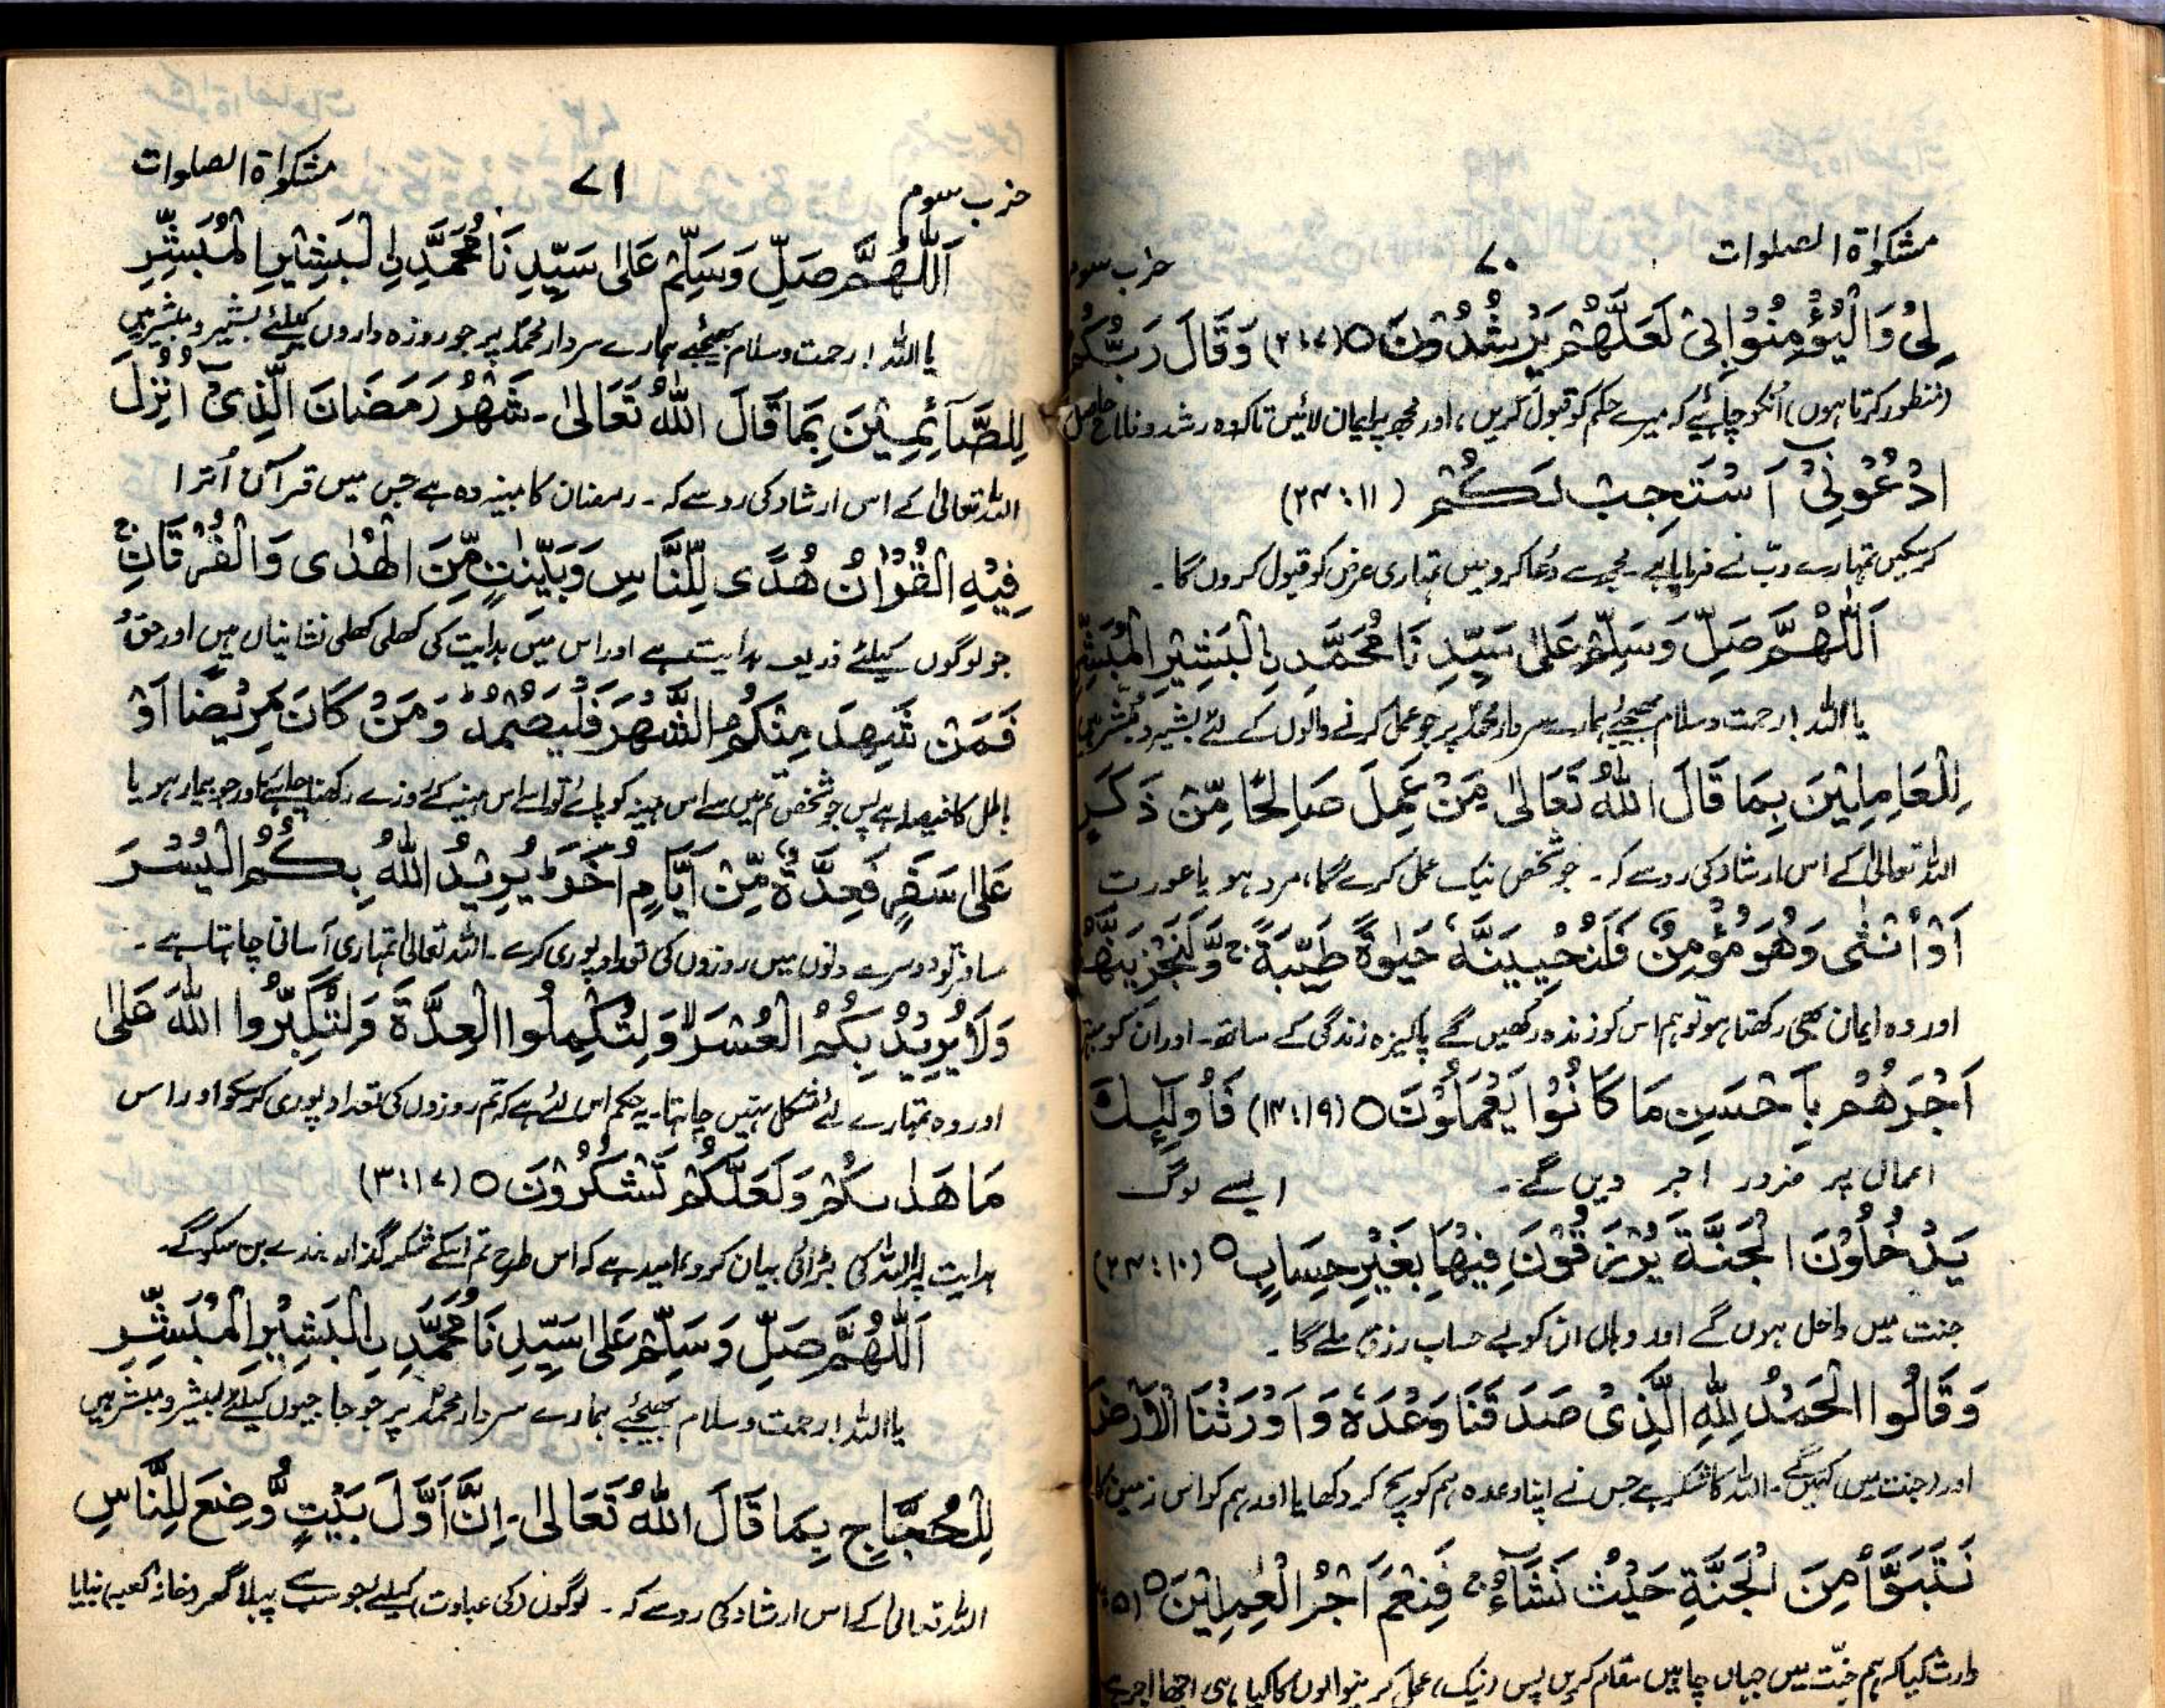 مشکوٰۃ الصلوات ۷۰ حزب سوم
لِیْ وَالْیُؤْمِنُوْا بِیْ لَعَلَّهُمْ یَرْشُدُوْنَ ○ (۲:۷) وَقَالَ رَبُّکُمُ
(منظور کرتا ہوں) انکو چاہئیے کہ میرے حکم کو قبول کریں، اور مجھ پر ایمان لائیں تاکہ وہ رشد و فلاح حاصل
ادْعُوْنِیْٓ اَسْتَجِبْ لَکُمْ (۲۴:۱۱)
کر سکیں تمہارے ربّ نے فرمایا ہے۔ مجھ سے دُعا کرو میں تمہاری عرض کو قبول کروں گا۔
اَللّٰهُمَّ صَلِّ وَسَلِّمْ عَلٰی سَیِّدِنَا مُحَمَّدِ نِالْبَشِیْرِ الْمُبَشِّرِ
یا اللہ! رحمت و سلام بھیجئے ہمارے سردار محمدؐ پر جو عمل کرنے والوں کے لئے بشیر و مبشر ہیں
لِلْعَامِلِیْنَ بِمَا قَالَ اللّٰهُ تَعَالٰی مَنْ عَمِلَ صَالِحًا مِّنْ ذَکَرٍ
اللہ تعالیٰ کے اس ارشاد کی رو سے کہ۔ جو شخص نیک عمل کرے گا، مرد ہو یا عورت
اَوْ اُنْثٰی وَهُوَ مُؤْمِنٌ فَلَنُحْیِیَنَّهٗ حَیٰوةً طَیِّبَةً ج وَلَنَجْزِیَنَّهُمْ
اور وہ ایمان بھی رکھتا ہو تو ہم اس کو زندہ رکھیں گے پاکیزہ زندگی کے ساتھ۔ اور ان کو بہتر
اَجْرَهُمْ بِاَحْسَنِ مَا کَانُوْا یَعْمَلُوْنَ ○ (۱۴:۱۹) فَاُولٰٓئِکَ
اعمال پر ضرور اجر دیں گے۔ ایسے لوگ
یَدْخُلُوْنَ الْجَنَّةَ یُرْزَقُوْنَ فِیْهَا بِغَیْرِ حِسَابٍ ○ (۲۴:۱۰)
جنت میں داخل ہوں گے اور وہاں ان کو بے حساب رزق ملے گا۔
وَقَالُوا الْحَمْدُ لِلّٰهِ الَّذِیْ صَدَقَنَا وَعْدَهٗ وَاَوْرَثَنَا الْاَرْضَ
اور (جنت میں) کہیں گے۔ اللہ کا شکر ہے جس نے اپنا وعدہ ہم کو سچ کر دکھایا اور ہم کو اس زمین کا
نَتَبَوَّاُ مِنَ الْجَنَّةِ حَیْثُ نَشَآءُ ج فَنِعْمَ اَجْرُ الْعٰمِلِیْنَ ○
وارث کیا کہ ہم جنّت میں جہاں چاہیں مقام کریں پس (نیک) عمل کرنیوالوں کا کیا ہی اچھا اجر ہے
حزب سوم ۷۱ مشکوٰۃ الصلوات
اَللّٰهُمَّ صَلِّ وَسَلِّمْ عَلٰی سَیِّدِنَا مُحَمَّدِ نِ الْبَشِیْرِ الْمُبَشِّرِ
یا اللہ! رحمت و سلام بھیجئے ہمارے سردار محمدؐ پر جو روزہ داروں کیلئے بشیر و مبشر ہیں
لِلصَّآئِمِیْنَ بِمَا قَالَ اللّٰهُ تَعَالٰی۔ شَهْرُ رَمَضَانَ الَّذِیْٓ اُنْزِلَ
اللہ تعالیٰ کے اس ارشاد کی رو سے کہ۔ رمضان کا مہینہ وہ ہے جس میں قرآن اُترا
فِیْهِ الْقُرْاٰنُ هُدًی لِّلنَّاسِ وَبَیِّنٰتٍ مِّنَ الْهُدٰی وَالْفُرْقَانِ ج
جو لوگوں کیلئے ذریعہ ہدایت ہے اور اس میں ہدایت کی کھلی کھلی نشانیاں ہیں اور حق و
فَمَنْ شَهِدَ مِنْکُمُ الشَّهْرَ فَلْیَصُمْهُ ط وَمَنْ کَانَ مَرِیْضًا اَوْ
باطل کا فیصلہ ہے پس جو شخص تم میں سے اس مہینہ کو پائے تو اسے اس مہینہ کے روزے رکھنا چاہئے اور جو بیمار ہو یا
عَلٰی سَفَرٍ فَعِدَّةٌ مِّنْ اَیَّامٍ اُخَرَ ط یُرِیْدُ اللّٰهُ بِکُمُ الْیُسْرَ
مسافر تو دوسرے دنوں میں روزوں کی تعداد پوری کرے۔ اللہ تعالیٰ تمہاری آسانی چاہتا ہے۔
وَلَا یُرِیْدُ بِکُمُ الْعُسْرَ وَلِتُکْمِلُوا الْعِدَّةَ وَلِتُکَبِّرُوا اللّٰهَ عَلٰی
اور وہ تمہارے لئے مشکل نہیں چاہتا۔ یہ حکم اس لئے ہے کہ تم روزوں کی تعداد پوری کر سکو اور اس
مَا هَدٰىکُمْ وَلَعَلَّکُمْ تَشْکُرُوْنَ ○ (۳:۱۷)
ہدایت پر اللہ کی بڑائی بیان کرو، امید ہے کہ اس طرح تم اسکے شکر گذار بندے بن سکو گے۔
اَللّٰهُمَّ صَلِّ وَسَلِّمْ عَلٰی سَیِّدِنَا مُحَمَّدِ نِ الْبَشِیْرِ الْمُبَشِّرِ
یا اللہ! رحمت و سلام بھیجئے ہمارے سردار محمدؐ پر جو حاجیوں کیلئے بشیر و مبشر ہیں
لِلْحُجَّاجِ بِمَا قَالَ اللّٰهُ تَعَالٰی۔ اِنَّ اَوَّلَ بَیْتٍ وُّضِعَ لِلنَّاسِ
اللہ تعالیٰ کے اس ارشاد کی رو سے کہ۔ لوگوں (کی عبادت) کیلئے جو سب سے پہلا گھر (خانہ کعبہ) بنایا